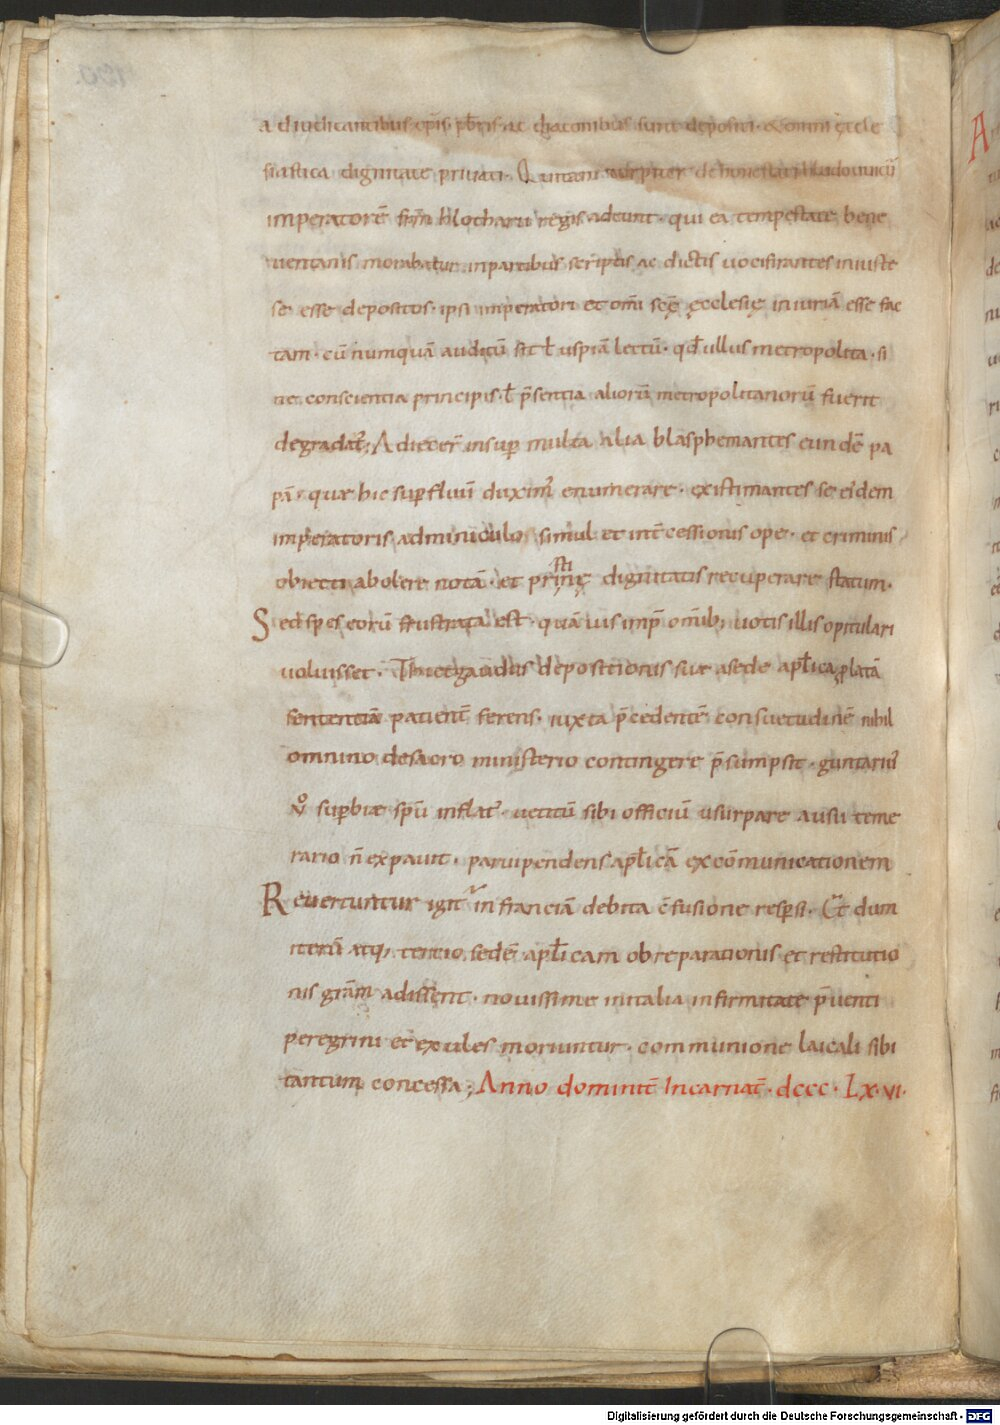 a diiudicantibus ep̄is. p̄bris. ac diaconibus sunt depositi. & omni ęccle
siastica dignitate priuati. Hludouuicū
imperatorē fr̄m hlotharii regis adeunt. qui ea tempestate bene
uentanis morabatur in partibus scriptis ac dictis uociferantes iniuste
se esse depositos. ipsi imperatori et om̄i scę̄ ęcclesię iniuriā esse fac
tam. cū numquā auditū sit ł uspiā lectū. qđ ullus metropolita. si
ne conscientia principis. ł p̄sentia aliorū metropolitanorū fuerit
degradat᷑; Adiecer̄ insup̄ multa alia blasphemantes eundē pa
pā. quæ hic sup̄fluū duxim᷒ enumerare. existimantes se eidem
imperatoris adminiculo. simul et int̄cessionis ope. et criminis
obiecti abolere notā. et pristinę dignitatis recuperare statum.
Sed spes eorū frustrata est. quāuis imp̄ om̄ib; uotis illis opitulari
uoluisset. Thietgaudus depositionis suæ a sede apl̄ica p̄latā
sententiā patient̄ ferens. iuxta p̄cedentē consuetudinē nihil
omnino de sacro ministerio contingere p̄sumpsit. guntari᷒
v̊ sup̄biæ spū inflat᷒. uetitū sibi officiū usurpare ausu teme
rario n̄ expauit. paruipendens apl̄icā excōmunicationem
Reuertuntur igit᷑ in franciā debita c̄fusione resp̄si. Et dum
iterū atq; tercio sedē apl̄icam ob reparationis et restitutio
nis gr̄am adissent. nouissime in italia infirmitate p̄uenti
peregrini et exules moriuntur. communione laicali sibi
tantum concessa; Anno dominic̄ Incarnat̄. dccc. Lx. vi.